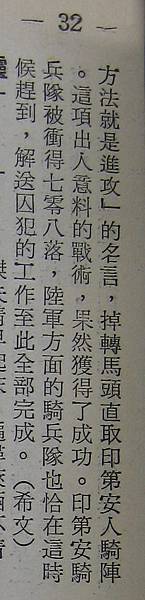 — 32 —
方法就是進攻」的名言，掉轉馬頭直取印第安人騎陣
。這項出人意料的戰術，果然獲得了成功。印第安騎
兵隊被衝得七零八落，陸軍方面的騎兵隊也恰在這時
候趕到，解送囚犯的工作至此全部完成。（希文）